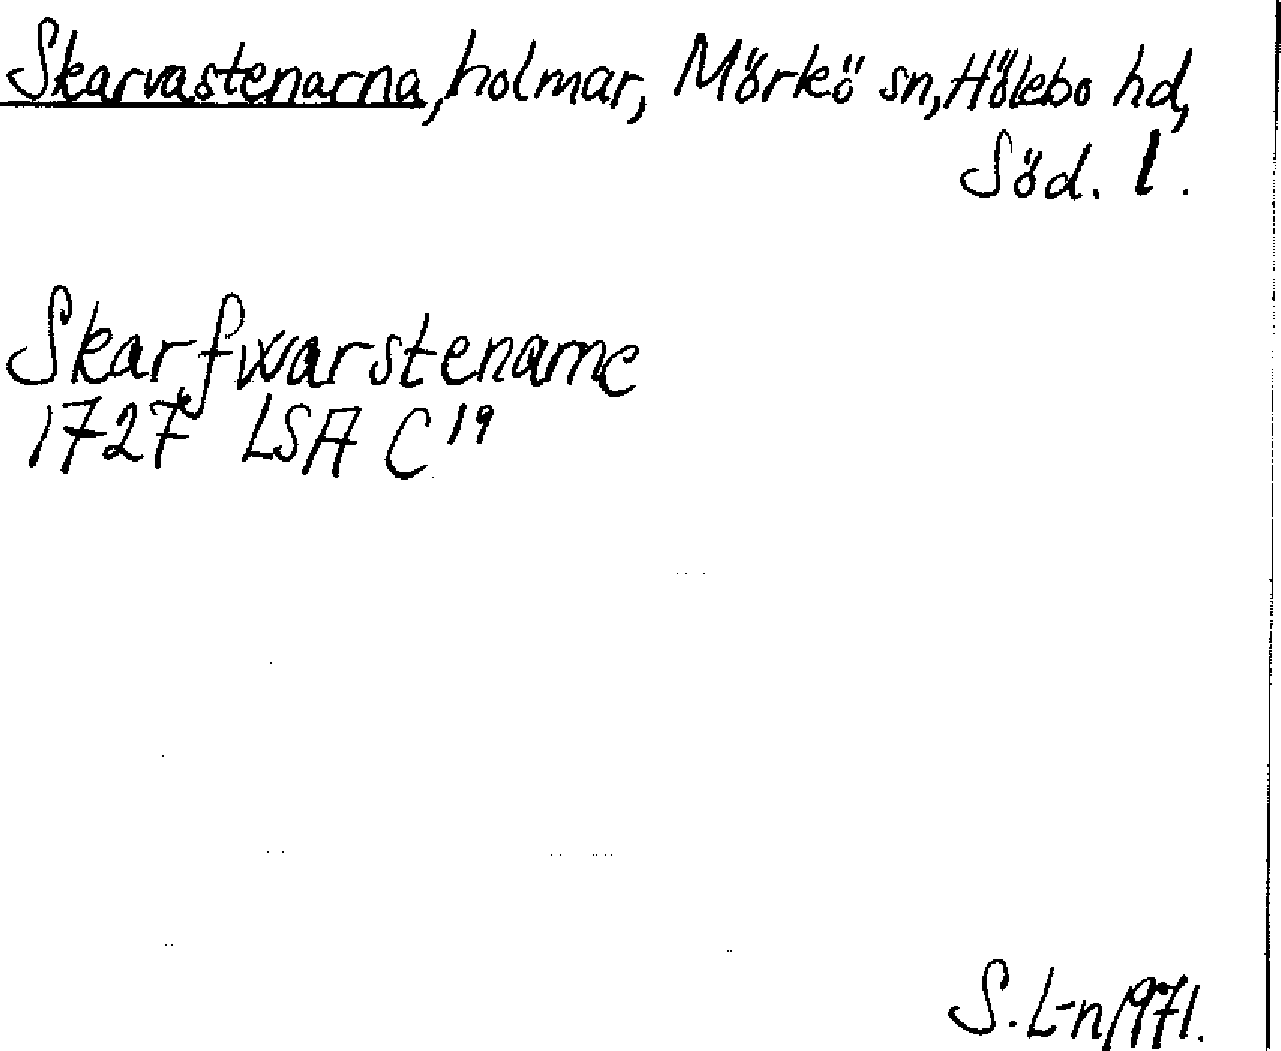 Skarvastenarna, holmar, Mörkö sn, Hölebo hd,
Söd. l.
Skarfwarstenarne
1727 LSA C 19
S. L-n 1971.